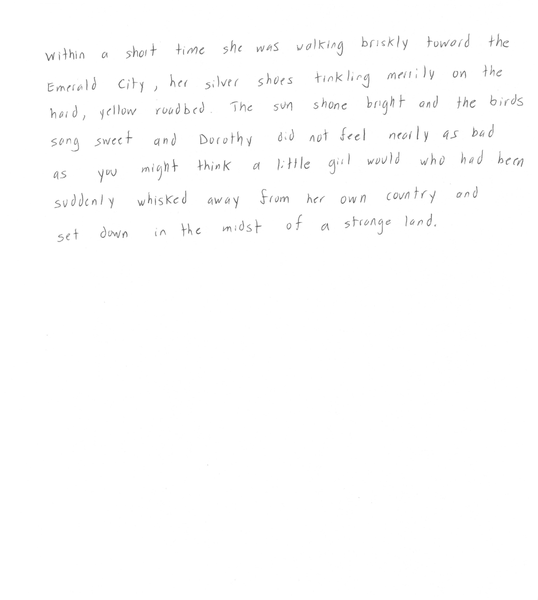 Within a short time she was walking briskly toward the
Emerald City, her silver shoes tinkling merrily on the
hard, yellow roadbed. The sun shone bright and the birds
song sweet and Dorothy did not feel nearly as bad
as you might think a little girl would who had been
suddenly whisked away from her own country and
set down in the midst of a strange land.